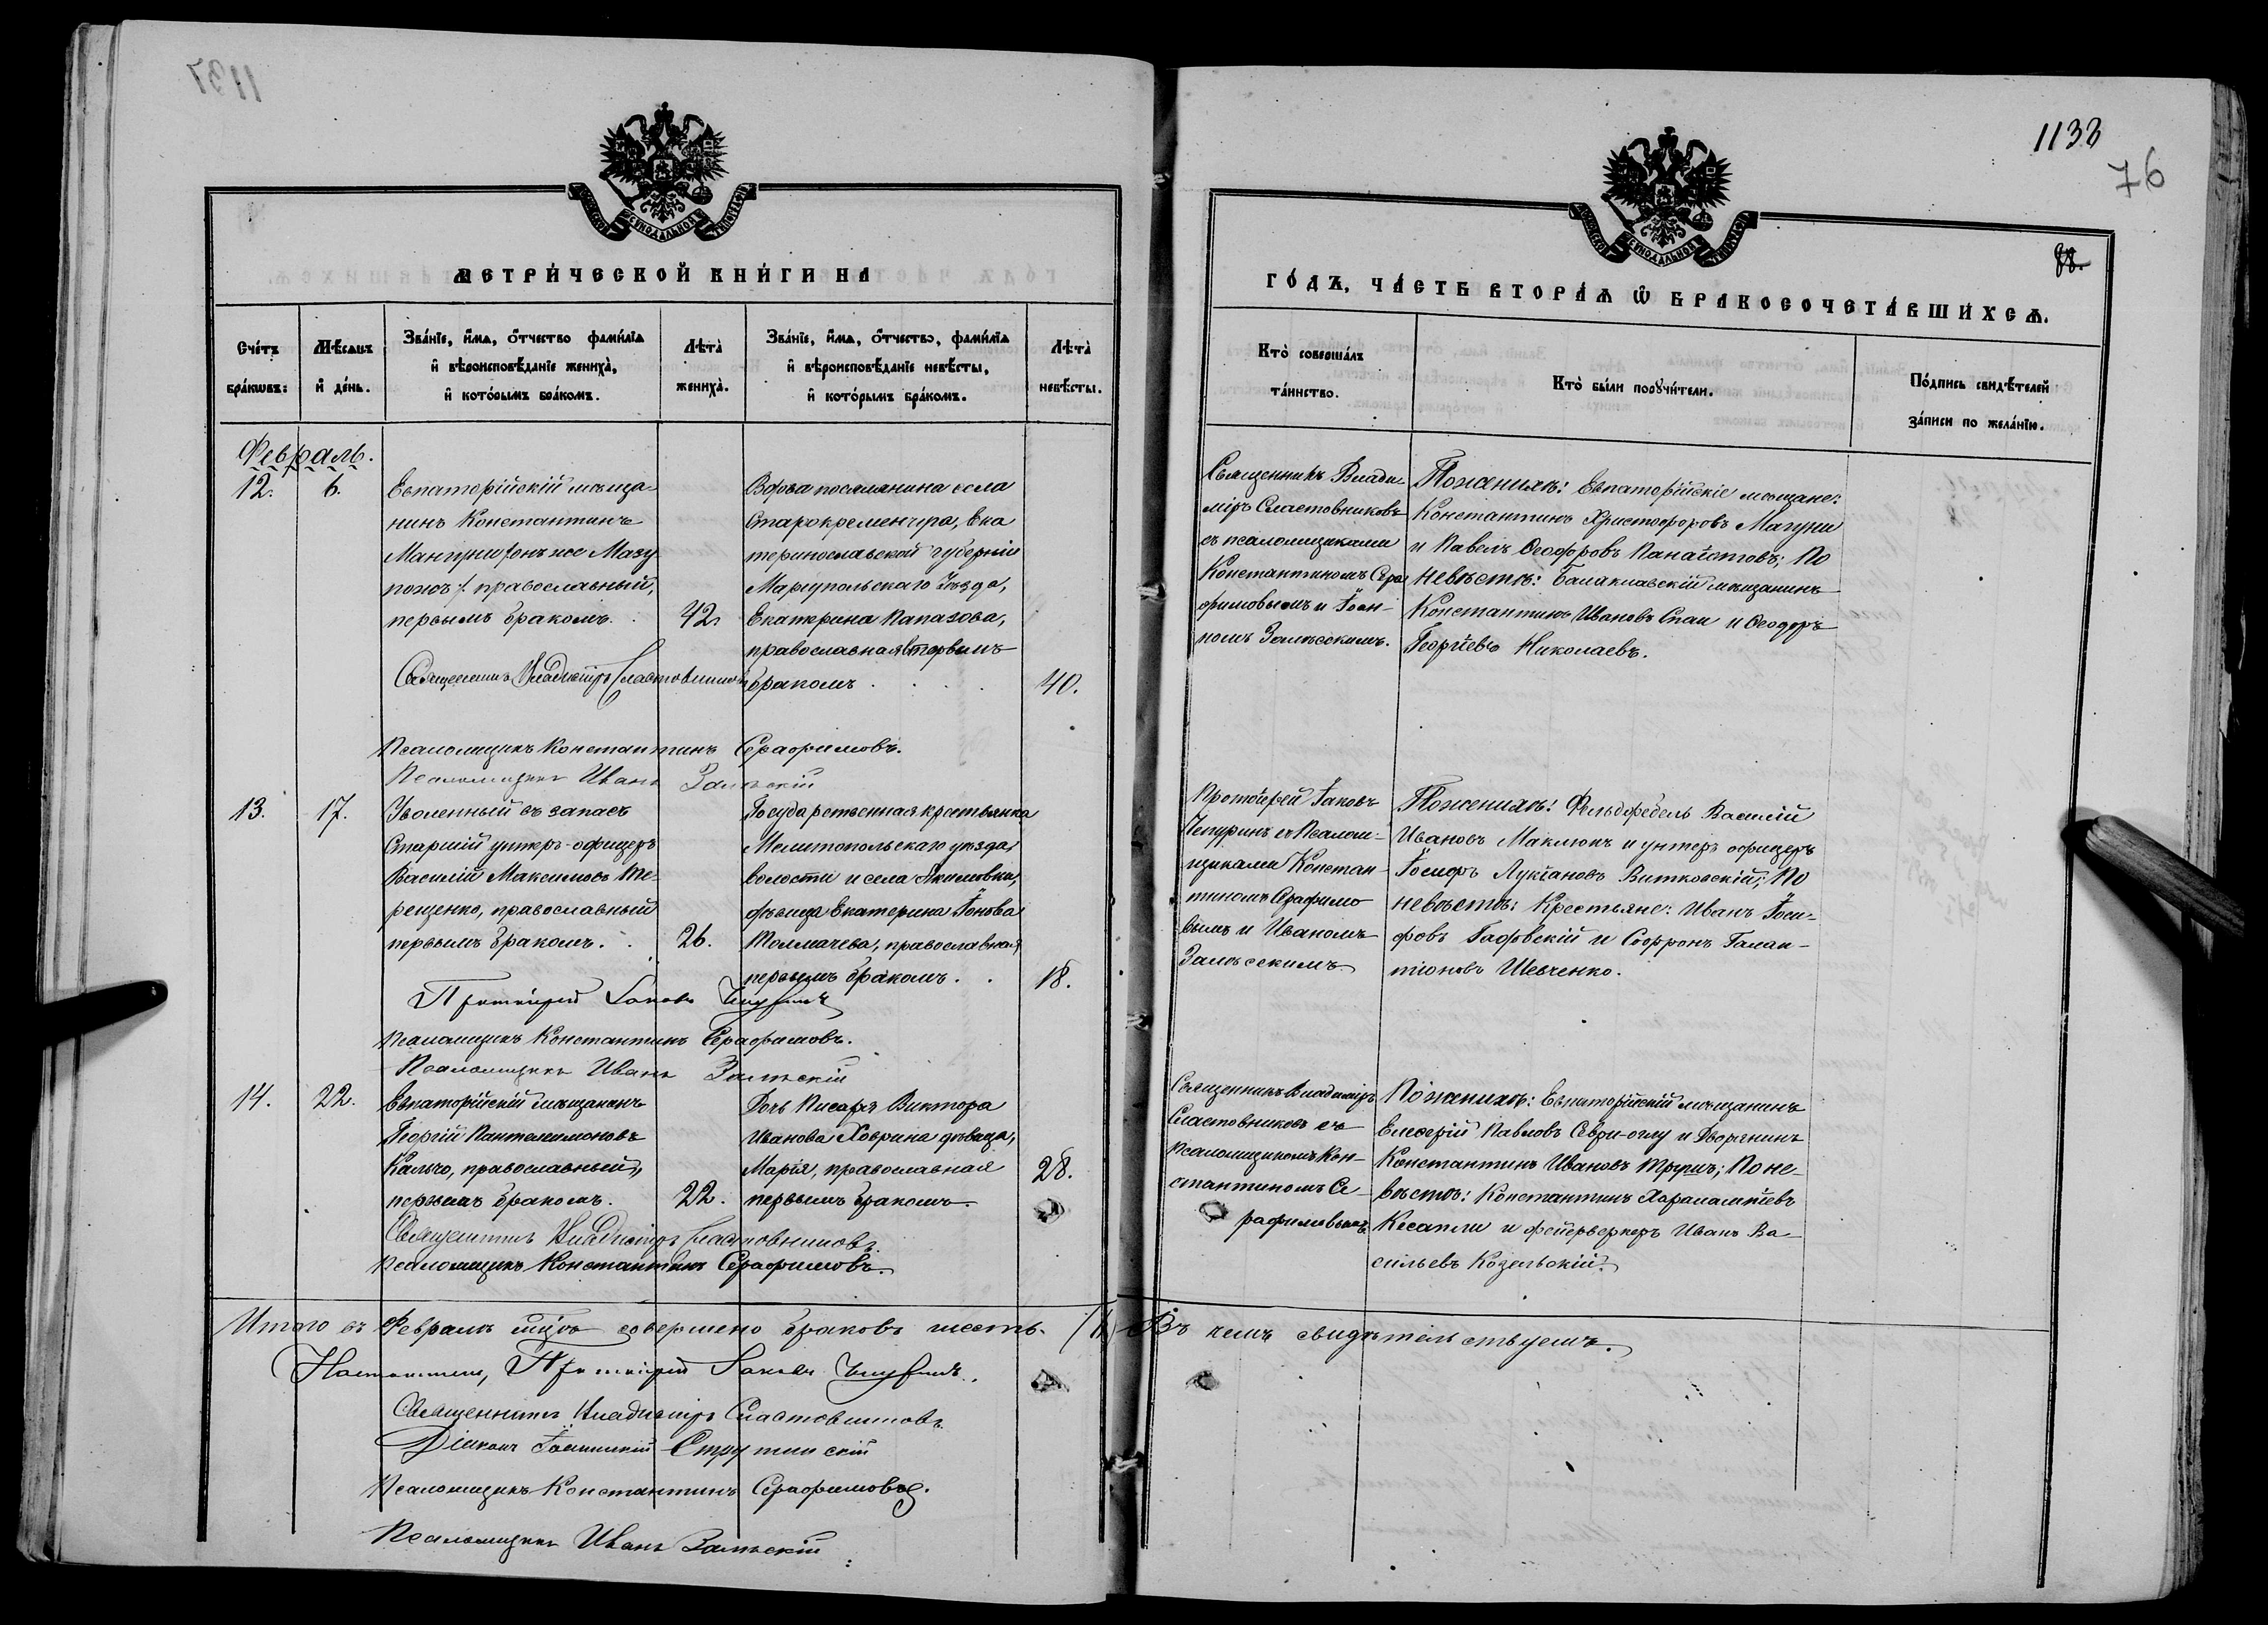 1133
76
МЕТРИ́ЧЕСКОЙ КНИ́ГИ НА
Сче́тъ бра́ковъ:
Мѣ́сяцъ и҆ де́нь.
Зва́нїе, и҆́мѧ, о҆́тчество фами́лїѧ и҆ вѣроисповѣ́данїе жениха̀, и҆ кото́рымъ бра́комъ.
Лѣ́та̀ жениха̀.
Зва́нїе, и҆́мѧ, о҆́тчество, фами́лїѧ и҆ вѣроисповѣ́данїе невѣ́сты, и҆ кото́рымъ бра́комъ.
Лѣ́та̀ невѣ́сты.
Февраль.
12.
6.
Евпаторійскій мѣща-
нинъ Константинъ
православный,
первымъ бракомъ.
42.
Вдова поселянина села
Старокременчика, Ека
теринославской губерніи
Маріупольскаго Уѣзда,
Екатерина Папазова,
православная вторымъ
бракомъ
40.
Священникъ Владиміръ Сластовниковъ
Псаломщикъ Константинъ Серафимовъ.
Псаломщикъ Иванъ Залѣскій
13.
17.
Уволенный въ запасъ
Старшій унтеръ-офицеръ
Василій Максимовъ Те-
рещенко, православный
первымъ бракомъ.
26.
Государственная крестьянка
Мелитопольскаго уѣзда,
волости и села Акимовки,
дѣвица Екатерина Іонова
Толмачева, православная
первымъ бракомъ.
18.
Протоіерей Іаковъ Чепуринъ
Псаломщикъ Константинъ Серафимовъ.
Псаломщикъ Иванъ Залѣскій
14.
22.
Евпаторійскій мѣщанинъ
Георгій Пантелеимоновъ
Кальчо, православный,
первымъ бракомъ.
22.
Дочь Писаря Виктора
Иванова Ховрина дѣвица,
Марія, православная
первымъ бракомъ.
28.
Священникъ Владиміръ Сластовниковъ
Псаломщикъ Константинъ Серафимовъ.
Итого въ Февралѣ м҃цѣ совершено браковъ шесть.
Настоятель, Протоіерей Іаковъ Чепуринъ.
Священникъ Владиміръ Сластовниковъ
Діаконъ Струтинскій
Псаломщикъ Константинъ Серафимовъ.
Псаломщикъ Иванъ Залѣскій
ГО́ДЪ, ЧА́СТЬ ВТОРА́Ѧ Ѡ҆ БРАКОСОЧЕТА́ВШИХСѦ.
Кто̀ соверша́лъ та́инство.
Кто̀ бы́ли порꙋчи́тели.
По́дпись свидѣ́телей за́писи по жела́нїю.
Священникъ Влади
міръ Сластовниковъ
съ псаломщиками
Константиномъ Сера
фимовымъ и Іоан-
номъ Залѣсскимъ.
По женихѣ: Евпаторійскіе мѣщане:
Константинъ Христофоровъ Магуни
и Павелъ Ѳеодоровъ Панаіотовъ; По
невѣстѣ: Балаклавскій мѣщанинъ
Константинъ Ивановъ Спаи и Ѳеодоръ
Георгіевъ Николаевъ.
Протоіерей Іаковъ
Чепуринъ съ Псалом-
щиками Констан-
тиномъ Серафимо
вымъ и Иваномъ
Залѣсскимъ
По женихѣ: Фельдфебель Василій
Ивановъ Маклюкъ и унтеръ офицеръ
Іосифъ Лукіановъ Витковскій; По
невѣстѣ: Крестьяне: Иванъ Іоси-
фовъ Гадовскій и Софронъ Галак-
тіоновъ Шевченко.
Священникъ Владиміръ
Сластовниковъ съ
Псаломщикомъ Кон-
стантиномъ Се-
рафимовымъ.
По женихѣ: Евпаторійскій мѣщанинъ
Елевѳерій Павловъ Севри-оглу и Дворянинъ
Константинъ Ивановъ Трупъ; По не-
вѣстѣ: Константинъ Харалампіевъ
Кесапли и фейерверкеръ Иванъ Ва-
сильевъ Козельскій.
Въ чемъ свидѣтельствуемъ.